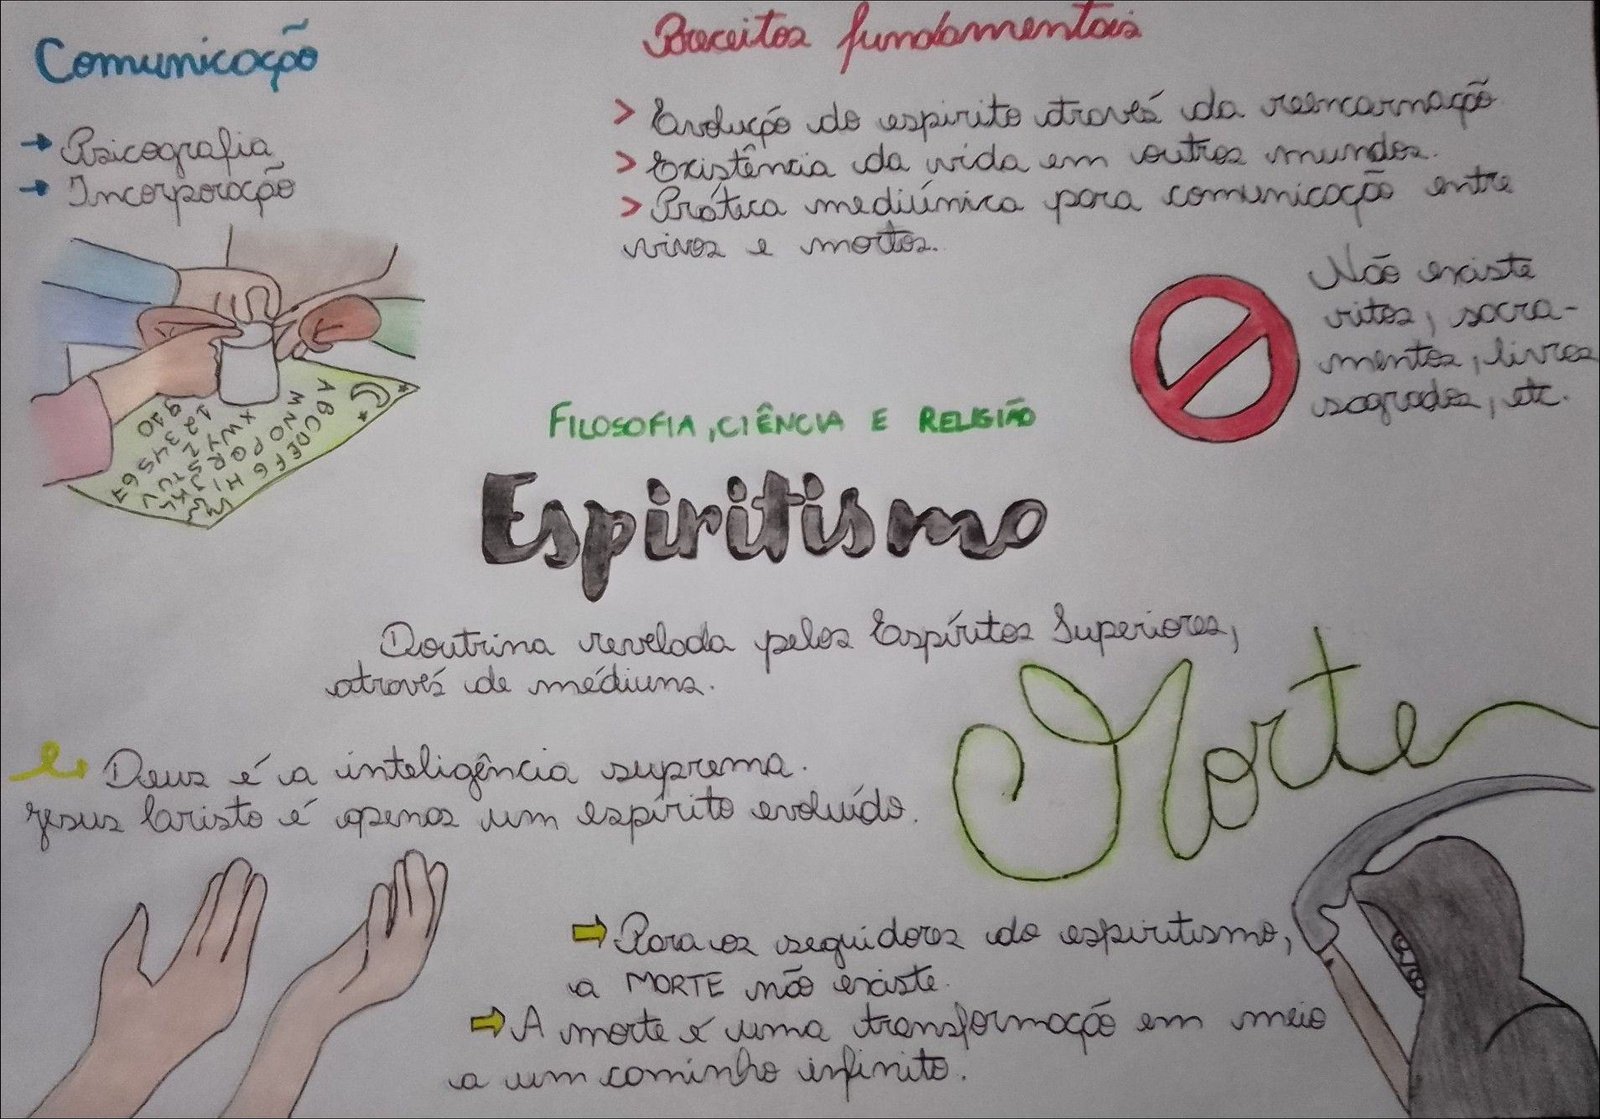 Comunicação
→ Psicografia
→ Incorporação
Preceitos fundamentais
> Evolução do espirito através da reencarnação
> Existência da vida em outros mundos.
> Prática mediúnica para comunicação entre
vivos e mortos.
Não existe
ritos, sacra-
mentos, livros
sagrados, etc.
FILOSOFIA, CIÊNCIA E RELIGIÃO
Espiritismo
Doutrina revelada pelos Espíritos Superiores,
através de médiuns.
Deus é a inteligência suprema.
Jesus Cristo é apenas um espírito evoluído.
Morte
Para os seguidores do espiritismo,
a MORTE não existe.
A morte é uma transformação em meio
a um caminho infinito.